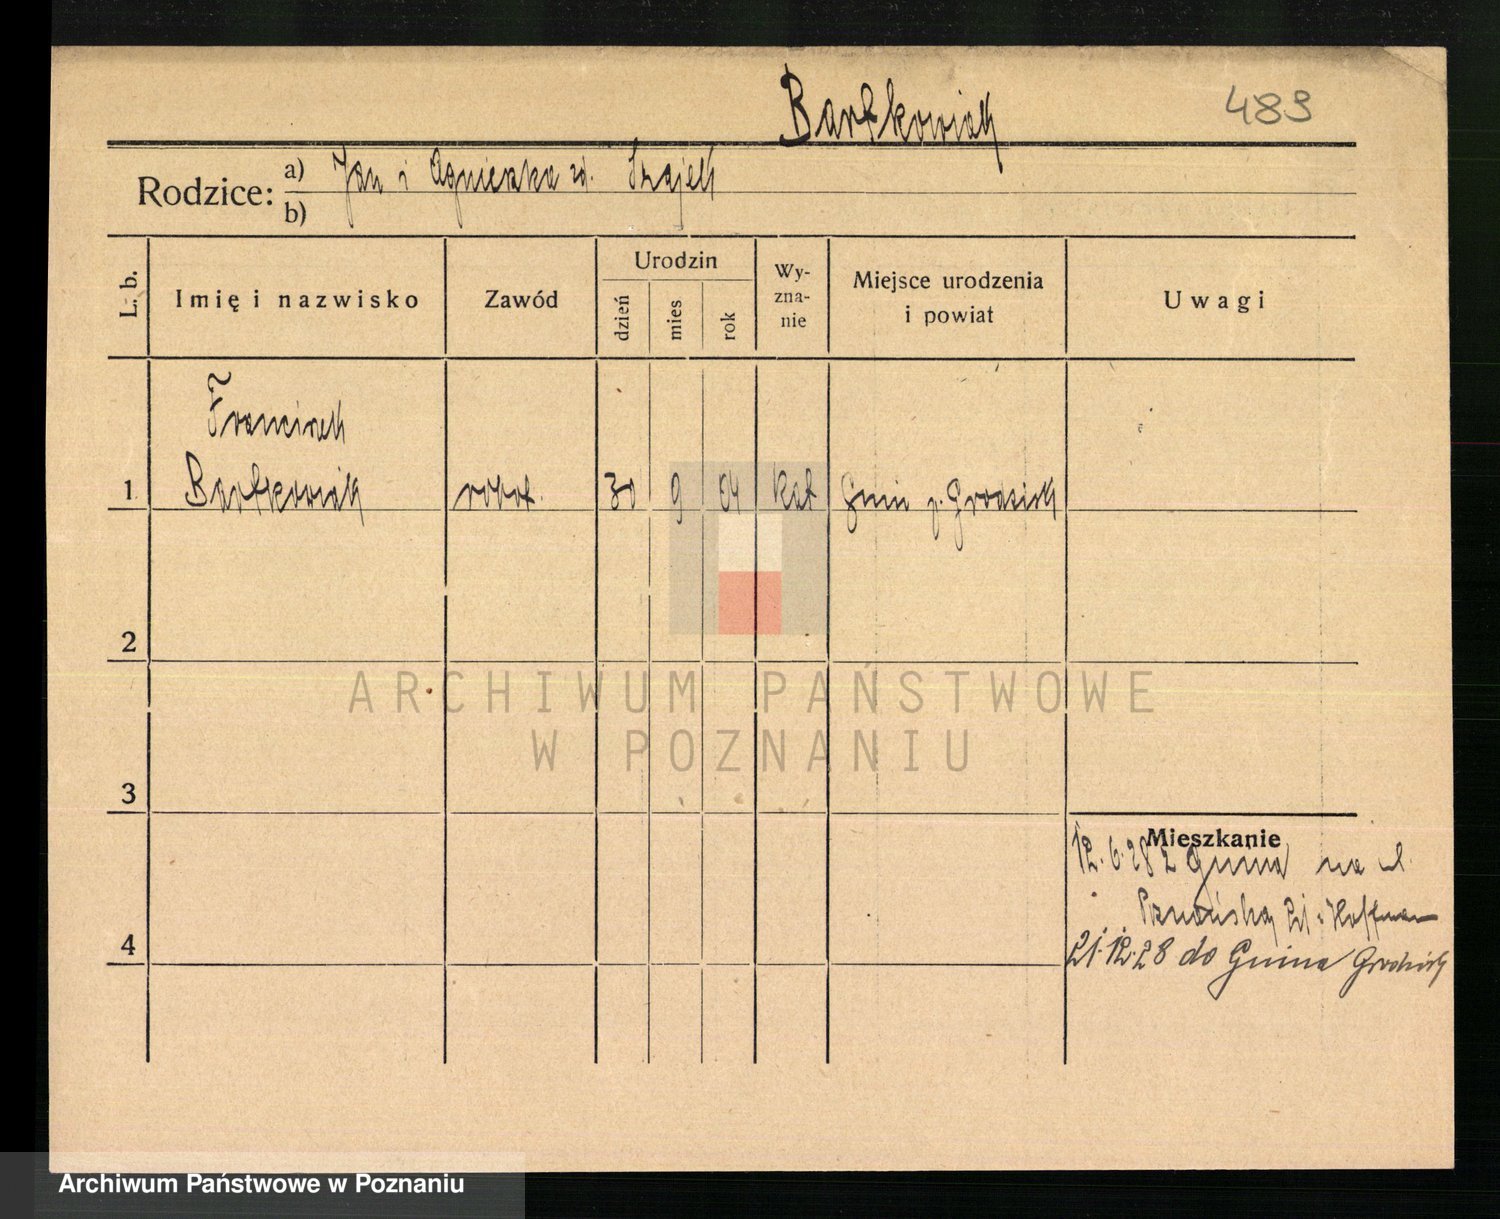 Bartkowiak
489
Rodzice:
a) Jan i Agnieszka zd. Szajek
b)
L. b.
Imię i nazwisko
Zawód
Urodzin
dzień
mies
rok
Wy-
zna-
nie
Miejsce urodzenia
i powiat
Uwagi
Franciszek
1 Bartkowiak robot. 30 9 04 kat Gnin p. Grodzisk
2
ARCHIWUM PAŃSTWOWE
W POZNANIU
3
Mieszkanie
12.6.28 z Gnina na ul.
Poznańską Hoffman
4
21.12.28 do Gnina Grodzisk
Archiwum Państwowe w Poznaniu